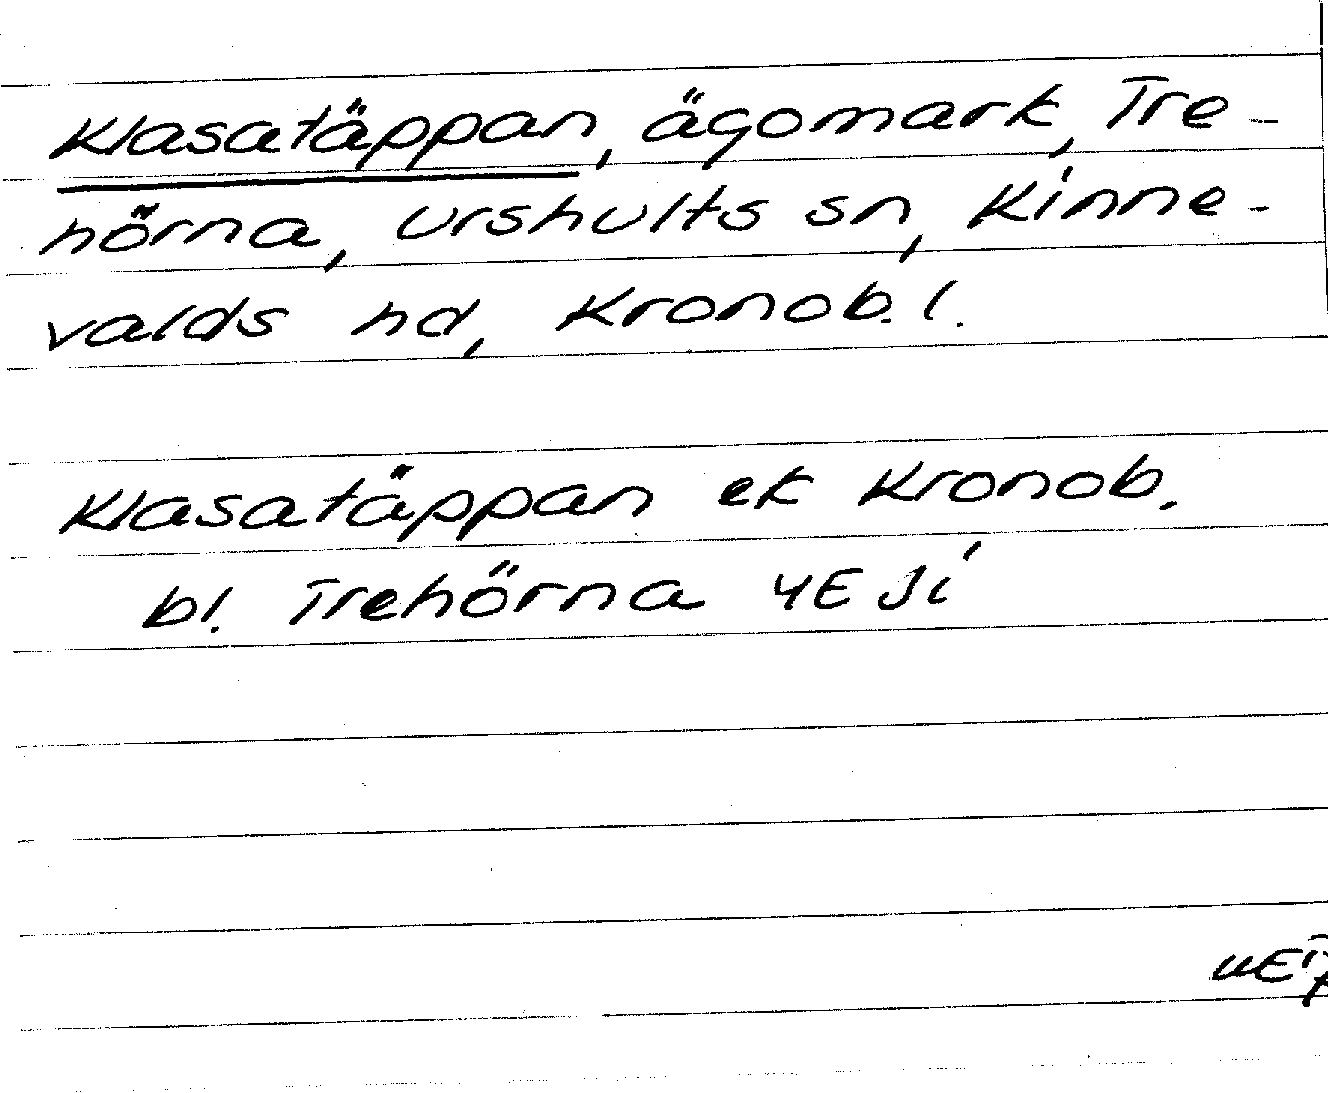 Klasatäppan, ägomark, Tre-
hörna, Urshults sn, Kinne-
valds hd, Kronob. l.
Klasatäppan ek Kronob.
bl. Trehörna 4E Ji